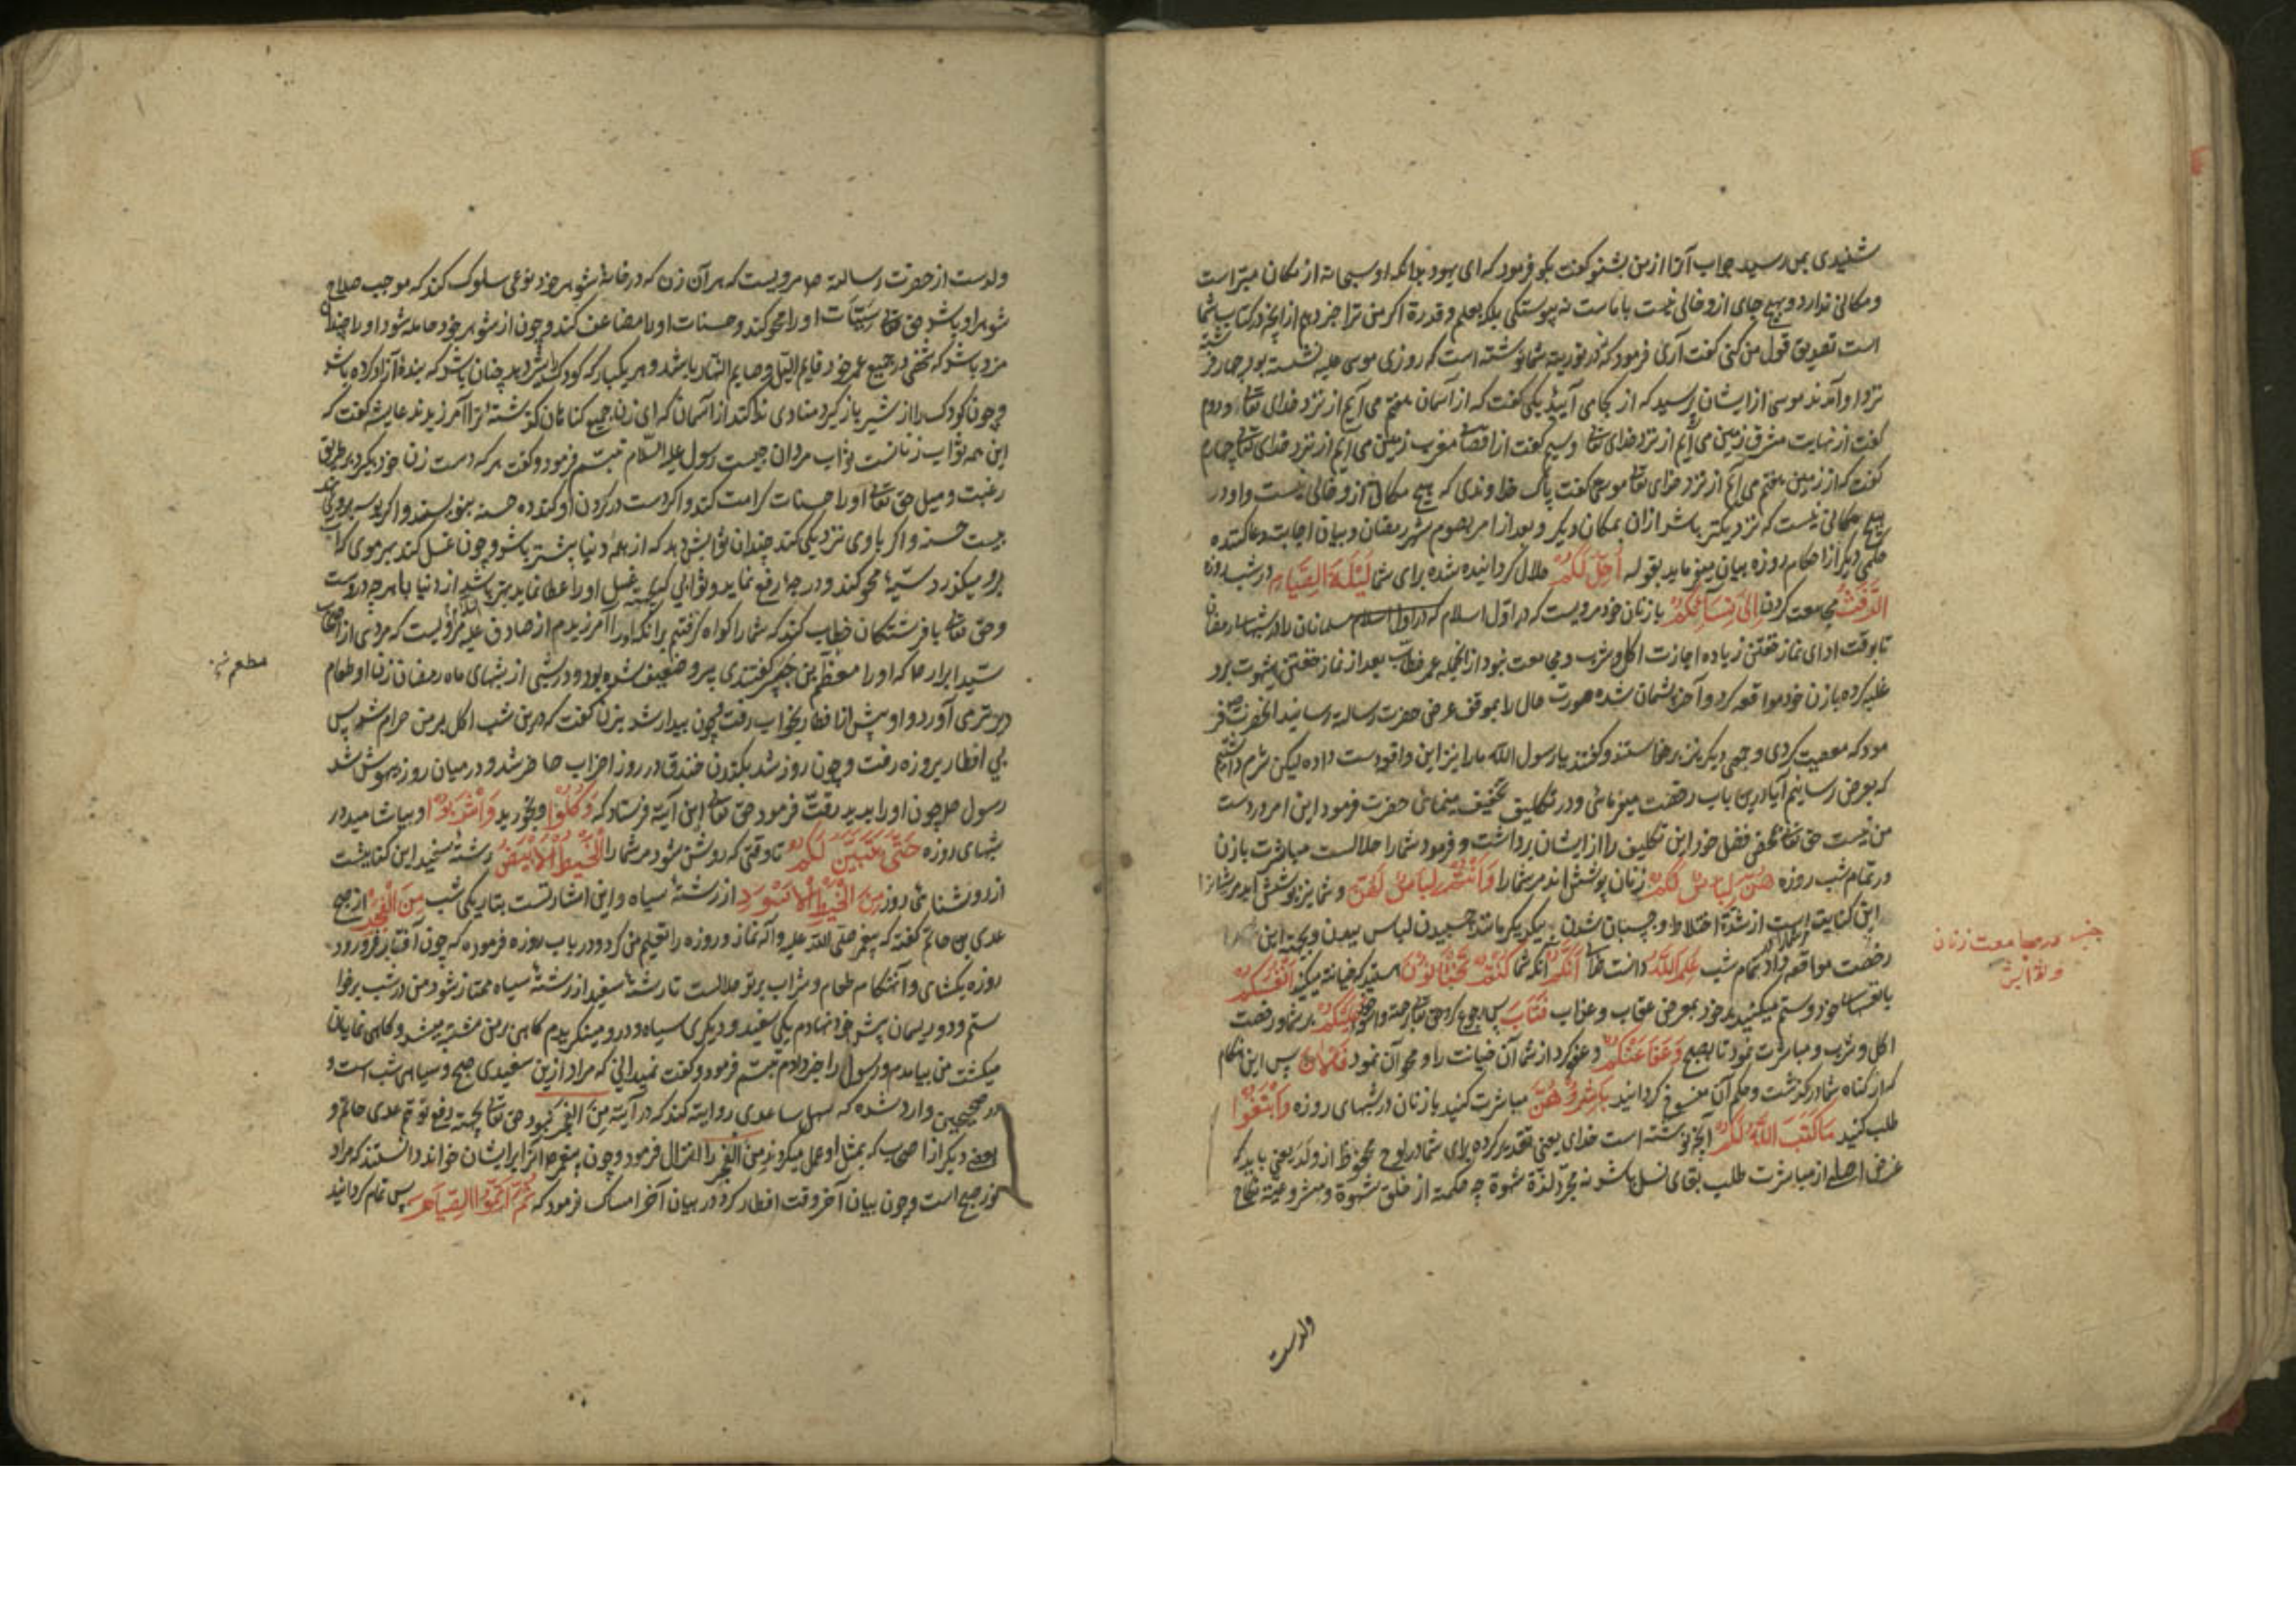 شنیدی بمن رسید جواب آنرا از من بشنو گفت بگو فرمود که ای یهود بدانکه او سبحانه از مکان مبرّاست
و مکانی ندارد و هیچ جای ازو خالی نیست با ماست نه پیوستگی بلکه بعلم و قدرة اگر من ترا خبر دهم از آنچه در کتاب شما
است تصدیق قول من کنی گفت آری فرمود که در توریة شما نوشته است که روزی موسی علیه نشسته بود چهار فرشته
نزد او آمدند موسی از ایشان پرسید که از کجا می آیید یکی گفت که از آسمان هفتم می آیم از نزد خدای تعالی و دوم
گفت از نهایت مشرق زمین می آیم از نزد خدای تعالی و سیم گفت از اقصای مغرب زمین می آیم از نزد خدای تعالی چهارم
گفت که از زمین هفتم می آیم از نزد خدای تعالی موسی گفت پاک خداوندی که هیچ مکانی ازو خالی نیست و او در
هیچ مکانی نیست که نزدیکتر باشد ازان بمکان دیگر و بعد از امر بصوم شهر رمضان و بیان اجابت دعا کننده
حکمی دیگر از احکام روزه بیان میفرماید بقوله اُحِلَّ لَكُمْ حلال گردانیده شده برای شما لَيْلَةَ الصِّيَامِ در شب روزه
الرَّفَثُ مجامعت کردن اِلٰى نِسَائِكُمْ با زنان خود مرویست که در اوّل اسلام که در اول اسلام مسلمانان را در شبهای رمضان
تا بوقت ادای نماز خفتن زیاده اجازت اکل و شرب و مجامعت نبود از آنجمله عمر خطاب بعد از نماز خفتن شهوت برو
غلبه کرده با زن خود مواقعه کرد و آخر پشمان شده صورت حال را بموقف عرض حضرت رسالة رسانید آنحضرت فر
مود که معصیت کردی و جمعی دیگر نیز برخاستند و گفتند یا رسول الله ما را نیز این واقع دست داده لیکن شرم داشتیم
که بعرض رسانیم آیا درین باب رخصت میفرمائی و در تکلیف تخفیف مینمائی حضرت فرمود این امر در دست
من نیست حق تعالی بمحض فضل خود این تکلیف را از ایشان برداشت و فرمود شما را حلالست مباشرت با زن
در تمام شب روزه هُنَّ لِبَاسٌ لَكُمْ زنان پوشش اند مر شما را وَاَنْتُمْ لِبَاسٌ لَهُنَّ و شما نیز پوشش اید مر ایشانرا
این کنایت است از شدة اختلاط و چسبان شدن بیکدیگر مانند چسبیدن لباس ببدن و بجهة این
رخصت مواقعه داد در تمام شب عَلِمَ اللّٰهُ دانست خدا اَنَّكُمْ آنکه شما كُنْتُمْ تَخْتَانُونَ هستید که خیانة میکنید اَنْفُسَكُمْ
با نفسهای خود و ستم میکنید بر خود بمعرض عقاب و عذاب فَتَابَ پس رجوع کرد حق تعالی برحمة عَلَيْكُمْ بر شما و رخصت
اکل و شرب و مباشرت نمود تا بصبح وَعَفَا عَنْكُمْ و عفو کرد از شما آن خیانت را و محو آن نمود فَالْاٰنَ پس این هنگام
که از گناه شما در گذشت و حکم آن منسوخ گردانید بَاشِرُوهُنَّ مباشرت کنید با زنان در شبهای روزه وَابْتَغُوا
طلب کنید مَا كَتَبَ اللّٰهُ لَكُمْ آنچه نوشته است خدای یعنی تقدیر کرده برای شما در لوح محفوظ از ولد یعنی باید که
غرض اصلی از مباشرت طلب بقای نسل باشد نه مجرّد لذّة شهوة چه حکمة از خلق شهوة و مشروعیة نکاح
ولدست
در مجامعت زنان
و ثوابش
ولدست از حضرت رسالة ص مرویست که هر آن زن که در خانهٔ شوهر خود نوعی سلوک کند که موجب صلاح
شوهر او باشد حق تعالی سیّئات او را محو کند و حسنات او را مضاعف کند و چون از شوهر خود حامله شود او را چندان
مزد باشد که شخصی در جمیع عمر خود قایم اللیل و صایم النهار باشد و هر یکبار که کودک را شیر دهد چنان باشد که بندهٔ آزاد کرده باشد
و چون کودک را از شیر باز گیرد منادی ندا کند از آسمان که ای زن جمیع گناهان گذشتهٔ ترا آمرزیدند عایشه گفت که
این همه ثواب زنانست ثواب مردان چیست رسول علیه السّلام تبسّم فرمود و گفت هر که دست زن خود بگیرد بر طریق
رغبت و میل حق تعالی او را حسنات کرامت کند و اگر دست در گردن او کند ده حسنه بنویسند و اگر بوسه برو دهد
بیست حسنه و اگر با وی نزدیکی کند چندان ثوابش دهد که از همهٔ دنیا بیشتر باشد و چون غسل کند بهر موی که آب
برو میگذرد سیّئهٔ محو کند و درجهٔ رفع نماید و ثوابی که بجهة غسل او را عطا نماید بهتر باشد از دنیا با هرچه دروست
و حق تعالی با فرشتگان خطاب کند که شما را گواه گرفتیم بر آنکه او را آمرزیدم از صادق علیه مرویست که مردی از اصحاب
سیّد ابرار ص که او را مطعم بن جبیر گفتندی پیر و ضعیف شده بود و در شبی از شبهای ماه رمضان زن او طعام
دیرتری آورد و او پیش از افطار بخواب رفت چون بیدار شد بزن گفت که درین شب اکل بر من حرام شد پس
بی افطار بروزه رفت و چون روز شد بکندن خندق در روز احزاب حاضر شد و در میان روز بیهوش شد
رسول ص چون او را بدید رقّت فرمود حق تعالی این آیة فرستاد که وَكُلُوا و بخورید وَاشْرَبُوا و بیاشامید در
شبهای روزه حَتّٰى يَتَبَيَّنَ لَكُمُ تا وقتی که روشن شود مر شما را الْخَيْطُ الْاَبْيَضُ رشتهٔ سفید این کنایتست
از روشنائی روز مِنَ الْخَيْطِ الْاَسْوَدِ از رشتهٔ سیاه و این اشارتست بتاریکی شب مِنَ الْفَجْرِ از صبح
عدی بن حاتم گفته که پیغمبر صلی الله علیه و آله نماز و روزه را تعلیم من کرد و در باب روزه فرموده که چون آفتاب فرو رود
روزه بگشای و آنهنگام طعام و شراب بر تو حلالست تا رشتهٔ سفید از رشتهٔ سیاه ممتاز شود من در شب برخوا
ستم و دو ریسمان پیش خود نهادم یکی سفید و دیگری سیاه و درو مینگریدم گاهی بر من مشتبه میشد و گاهی نمایان
میگشت من بیامدم و رسول را خبر دادم تبسّم فرمود و گفت نمیدانی که مراد ازین سفیدی صبح و سیاهی شب است و
در صحیحین وارد شده که سهل ساعدی روایة کند که در آیة مِنَ الْفَجْرِ نبود حق تعالی بجهة دفع توهّم عدی حاتم و
بعضی دیگر از اصحاب که بمثل او عمل میکردند من الفجر را انزال فرمود و چون پیغمبر ص آنرا بر ایشان خواند دانستند که مراد
نور صبح است و چون بیان آخر وقت افطار کرد در بیان آخر امساک فرمود که ثُمَّ اَتِمُّوا الصِّيَامَ پس تمام گردانید
مطعم بن